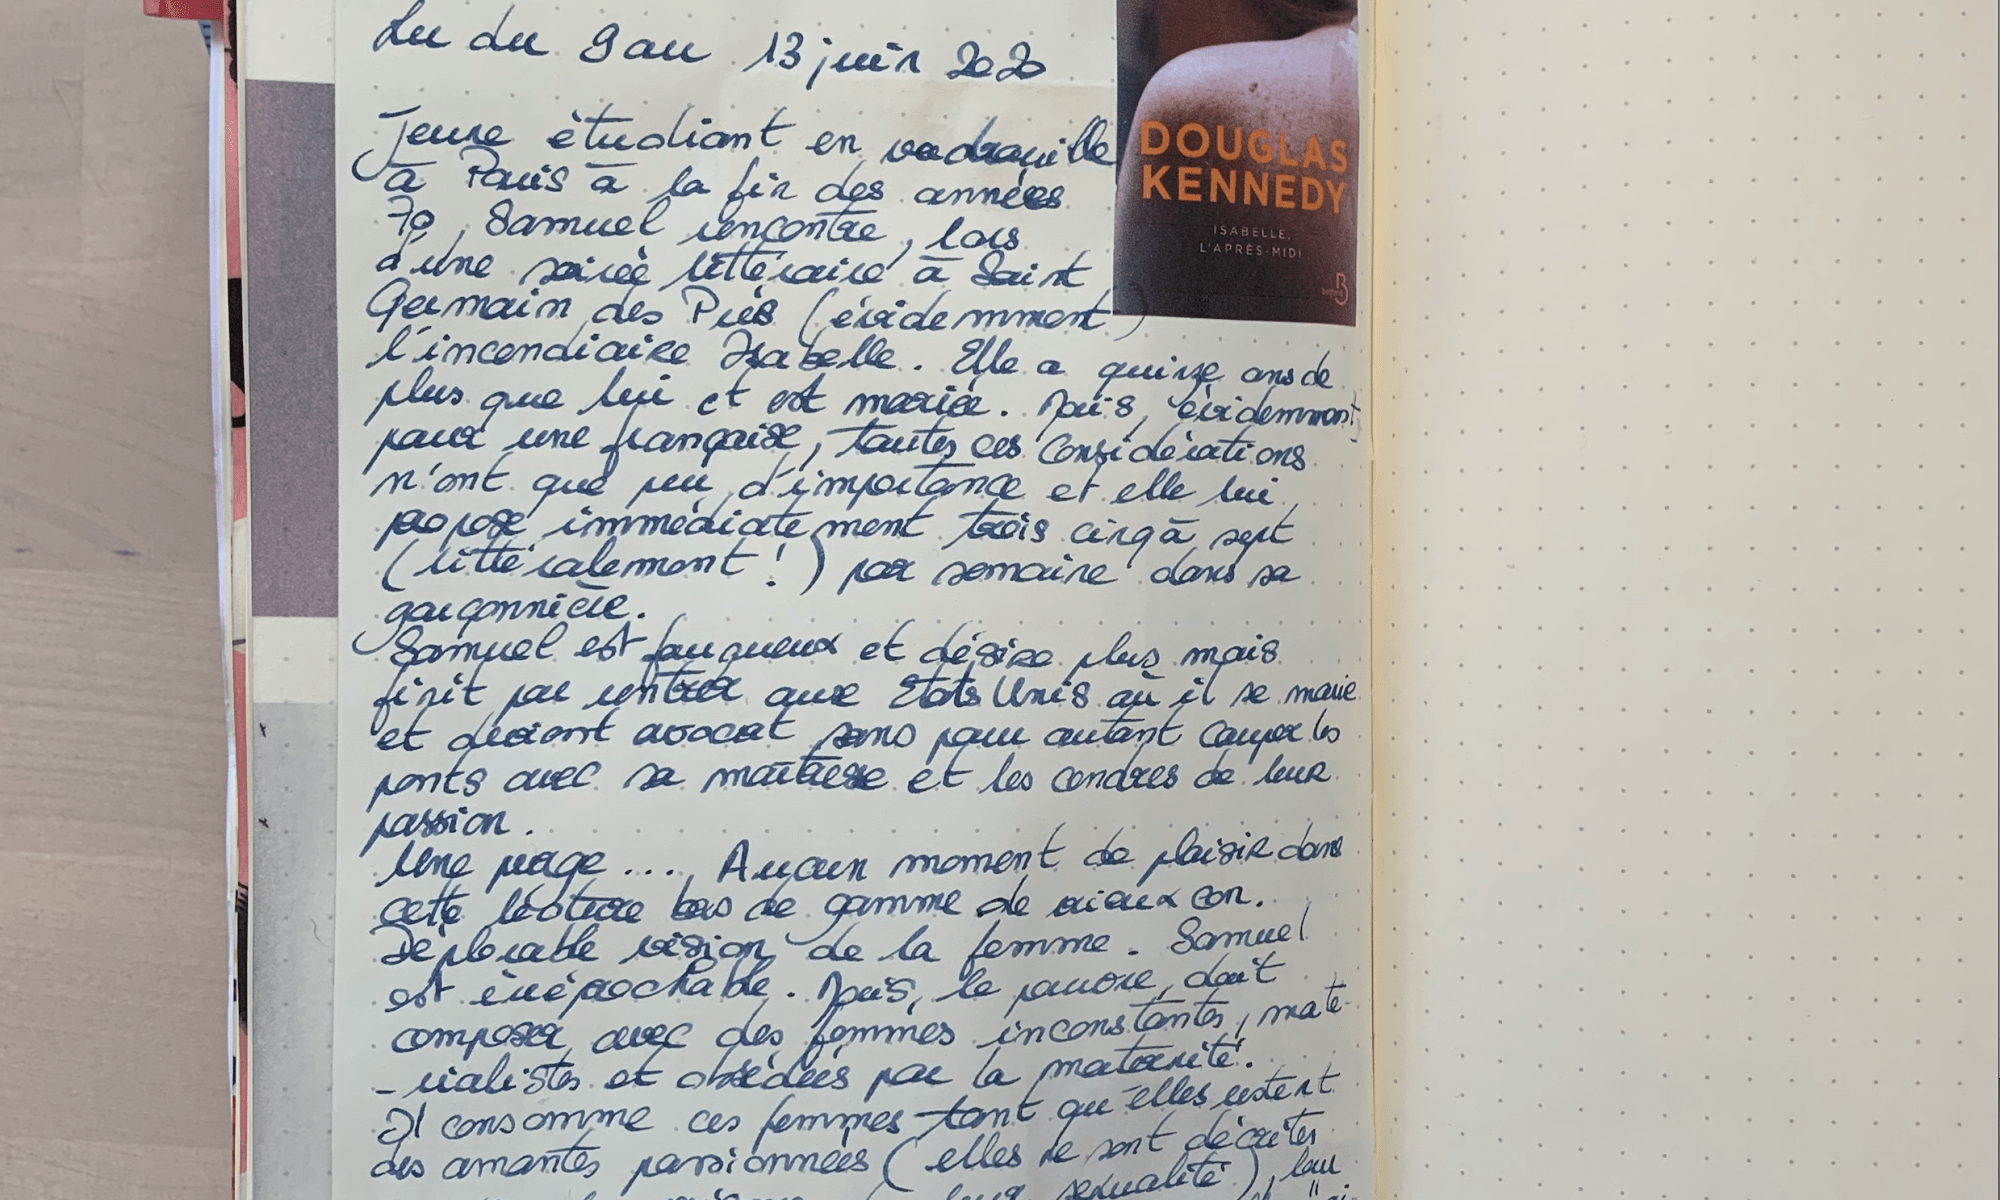 Lu du 9 au 13 juin 2020
Jeune étudiant en vadrouille
à Paris à la fin des années
70, Samuel rencontre, lors
d'une soirée littéraire à Saint
Germain des Prés (évidemment)
l'incendiaire Isabelle. Elle a quinze ans de
plus que lui et est mariée. Mais, évidemment,
pour une française, toutes ces considérations
n'ont que peu d'importance et elle lui
propose immédiatement trois cinq à sept
(littéralement !) par semaine dans sa
garçonnière.
Samuel est fougueux et désire plus mais
finit par rentrer aux Etats Unis où il se marie
et devient avocat sans pour autant couper les
ponts avec sa maîtresse et les cendres de leur
passion.
Une purge .... Aucun moment de plaisir dans
cette lecture bas de gamme de vieux con.
Déplorable vision de la femme. Samuel
est irréprochable. Mais, le pauvre, doit
composer avec des femmes inconstantes, maté-
-rialistes et obsédées par la maternité.
Il consomme ces femmes tant qu'elles restent
des amantes passionnées (elles ne sont décrites
sexualité), leur
DOUGLAS
KENNEDY
ISABELLE,
L'APRÈS-MIDI